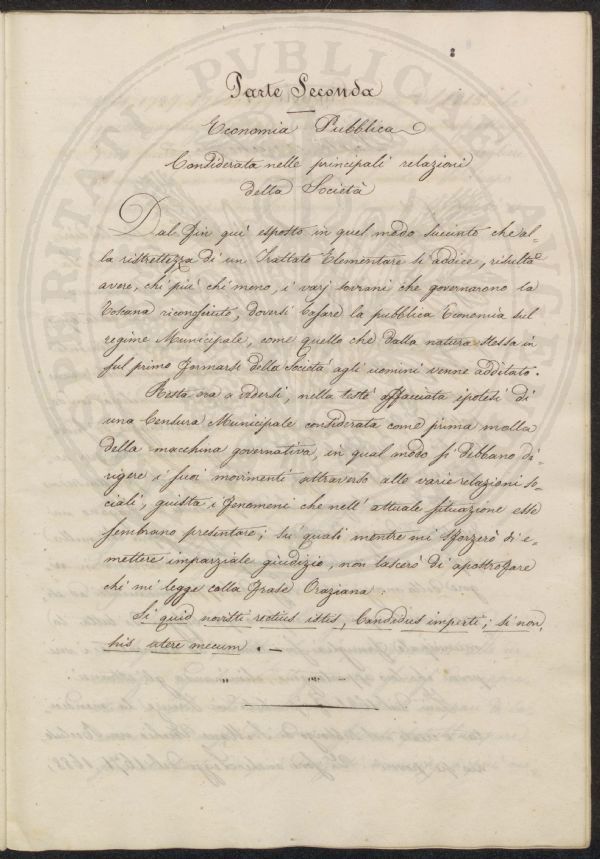 Parte Seconda
Economia Pubblica
Considerata nelle principali relazioni
della Società
Dal fin quì esposto in quel modo succinto che al-
la ristrettezza di un Trattato Elementare si addice, risulta
avere, chi più chi meno, i varj sovrani che governarono la
Toscana riconosciuto, doversi basare la pubblica Economia sul
regime Municipale, come quello che dalla natura stessa in
sul primo formarsi della Società agli uomini venne additato.
Resta ora a vedersi, nella testè affacciata ipotesi di
una Censura Municipale considerata come prima molla
della macchina governativa, in qual modo si debbano di-
rigere i suoi movimenti attraverso alle varie relazioni so-
ciali, giusta i fenomeni che nell' attuale situazione esse
sembrano presentare; su' quali mentre mi sforzerò di e-
mettere imparziale giudizio, non lascerò di apostrofare
chi mi legge colla frase Oraziana:
Si quid novisti rectius istis, Candidus imperti; si non,
his utere mecum. —